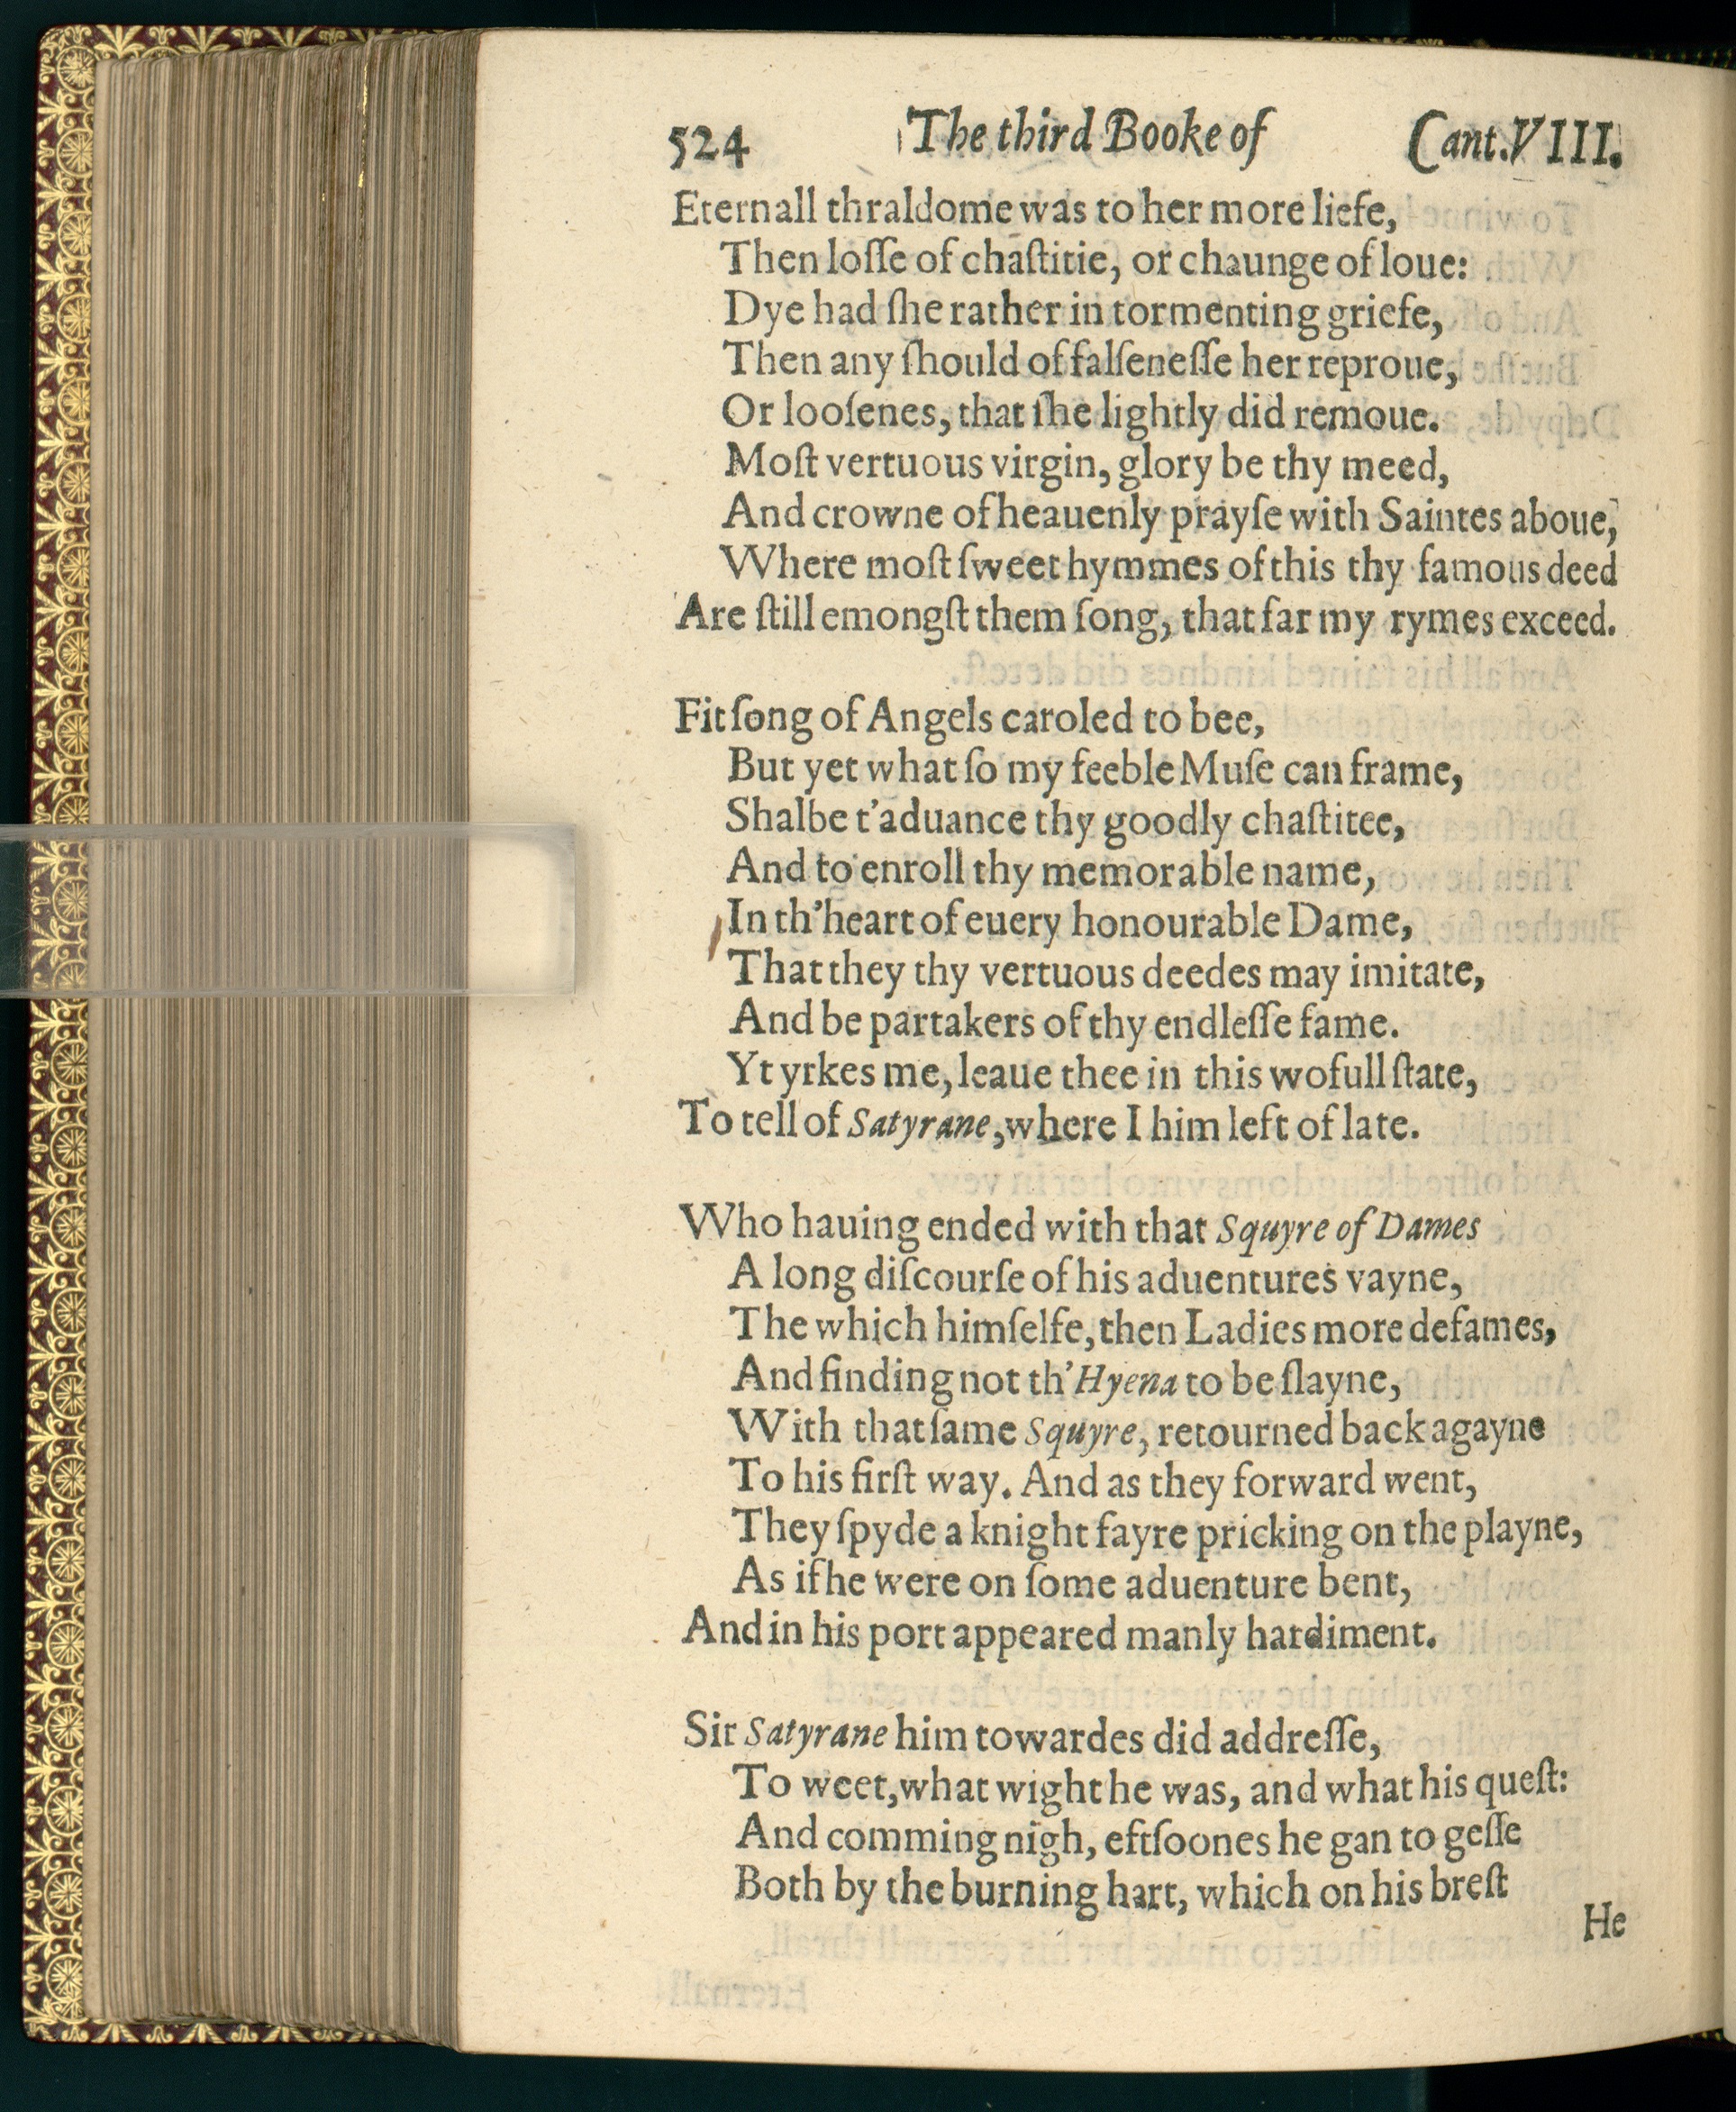 524 The third Booke of Cant. VIII.
Eternall thraldome was to her more liefe,
Then loſſe of chaſtitie, or chaunge of loue:
Dye had ſhe rather in tormenting griefe,
Then any ſhould of falſeneſſe her reproue,
Or looſenes, that ſhe lightly did remoue.
Moſt vertuous virgin, glory be thy meed,
And crowne of heauenly prayſe with Saintes aboue,
Where moſt ſweet hymmes of this thy famous deed
Are ſtill emongſt them ſong, that far my rymes exceed.
Fit ſong of Angels caroled to bee,
But yet what ſo my feeble Muſe can frame,
Shalbe t'aduance thy goodly chaſtitee,
And to enroll thy memorable name,
In th'heart of euery honourable Dame,
That they thy vertuous deedes may imitate,
And be partakers of thy endleſſe fame.
Yt yrkes me, leaue thee in this wofull ſtate,
To tell of Satyrane, where I him left of late.
Who hauing ended with that Squyre of Dames
A long diſcourſe of his aduentures vayne,
The which himſelfe, then Ladies more defames,
And finding not th'Hyena to be ſlayne,
With that ſame Squyre, retourned back agayne
To his firſt way. And as they forward went,
They ſpyde a knight fayre pricking on the playne,
As if he were on ſome aduenture bent,
And in his port appeared manly hardiment.
Sir Satyrane him towardes did addreſſe,
To weet, what wight he was, and what his queſt:
And comming nigh, eftſoones he gan to geſſe
Both by the burning hart, which on his breſt
He